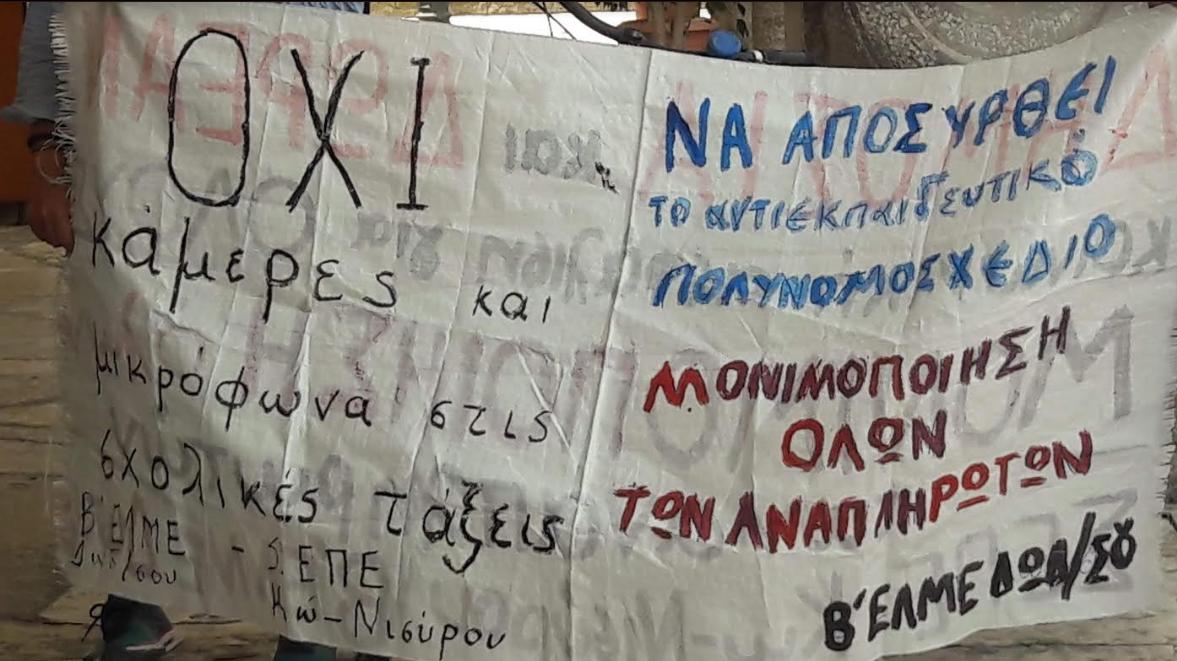 ΟΧΙ
κάμερες και
μικρόφωνα στις
σχολικές τάξεις
Β' ΕΛΜΕ - Σ. ΕΠΕ
Δωδ/σου Κω-Νισύρου
ΝΑ ΑΠΟΣΥΡΘΕΙ
το αντιεκπαιδευτικό
ΠΟΛΥΝΟΜΟΣΧΕΔΙΟ
ΜΟΝΙΜΟΠΟΙΗΣΗ
ΟΛΩΝ
ΤΩΝ ΑΝΑΠΛΗΡΩΤΩΝ
Β' ΕΛΜΕ ΔΩΔ/ΣΟΥ